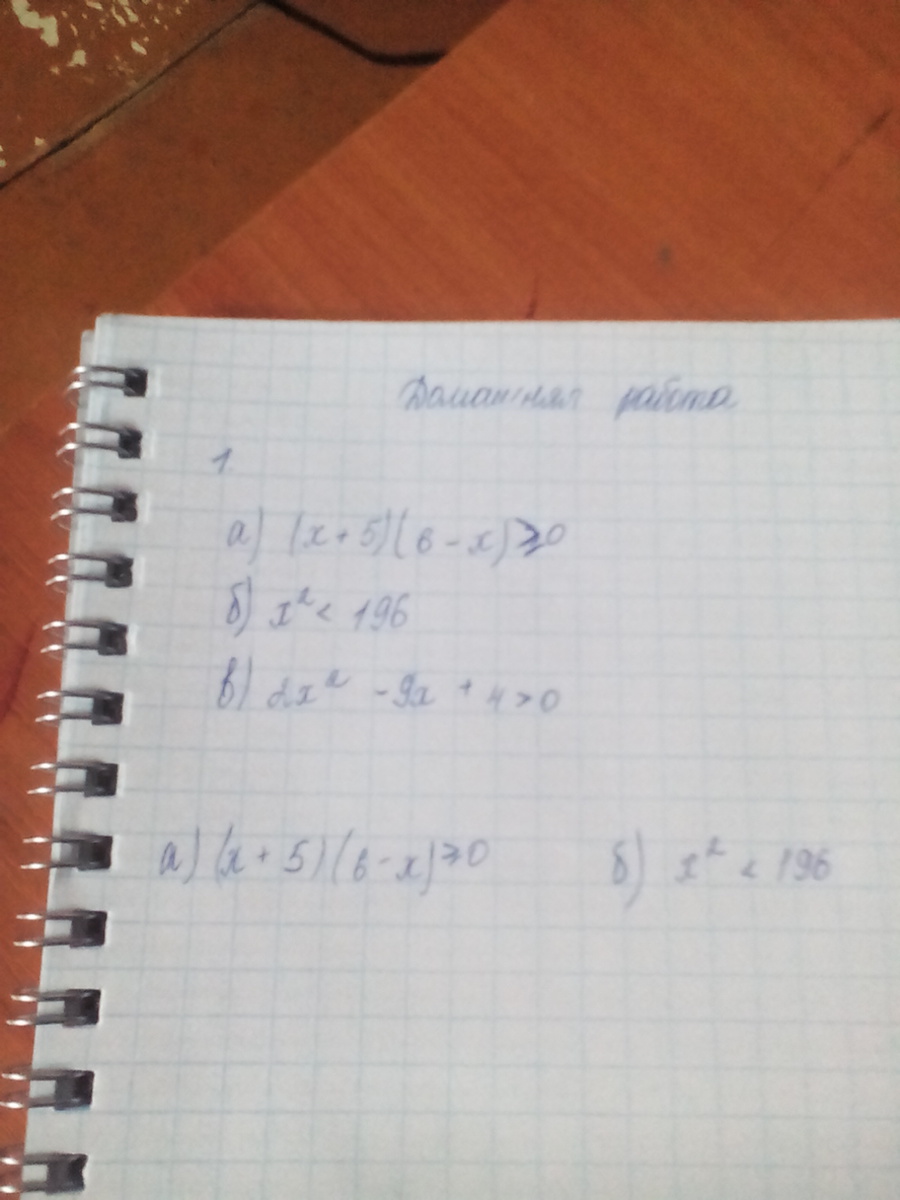 Домашняя работа
1
а) (x + 5)(6 - x) ⩾ 0
б) x² < 196
в) 2x² - 9x + 4 > 0
а) (x + 5)(6 - x) ⩾ 0 б) x² < 196